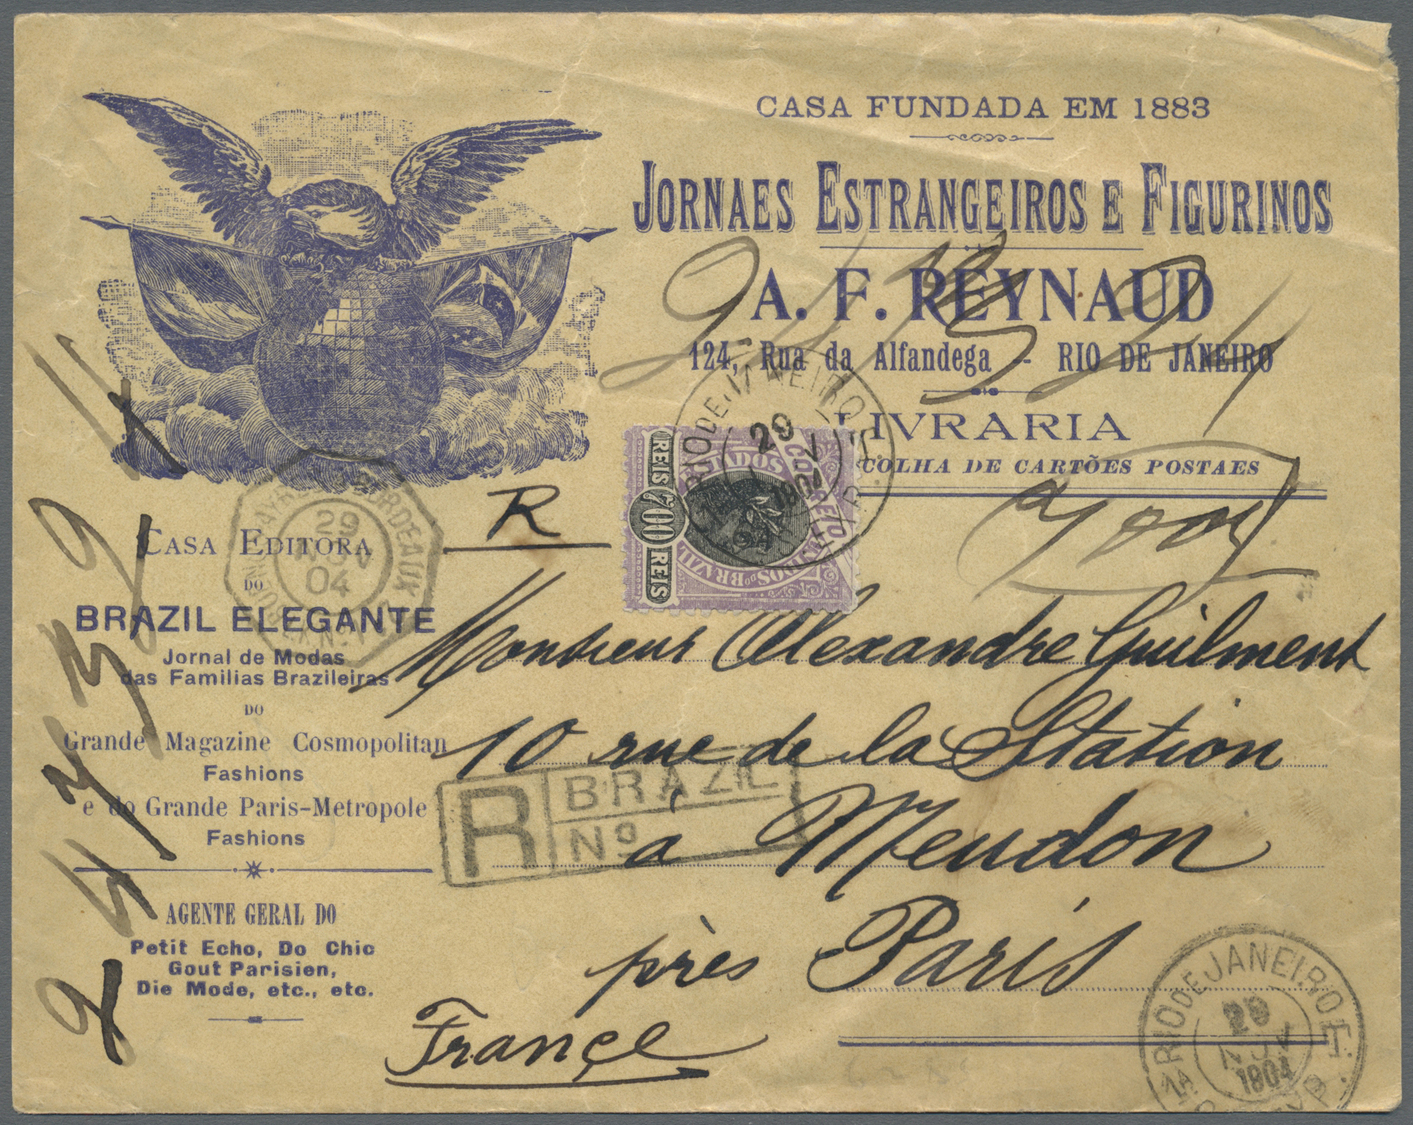 CASA FUNDADA EM 1883
JORNAES ESTRANGEIROS E FIGURINOS
A. F. REYNAUD
124, Rua da Alfandega - RIO DE JANEIRO
LIVRARIA
COLHA DE CARTÕES POSTAES
RIO DE JANEIRO
29
1904
CORREIO
BRAZIL
REIS 700 REIS
R
BORDEAUX
29
04
CASA EDITORA
DO
BRAZIL ELEGANTE
Jornal de Modas
das Familias Brazileiras
DO
Grande Magazine Cosmopolitan
Fashions
e do Grande Paris-Metropole
Fashions
AGENTE GERAL DO
Petit Echo, Do Chic
Gout Parisien,
Die Mode, etc., etc.
Monsieur Alexandre Guilmant
10 rue de la Station
à Meudon
près Paris
Françe
R BRAZIL
Nº
RIO DE JANEIRO
29
NOV
1904